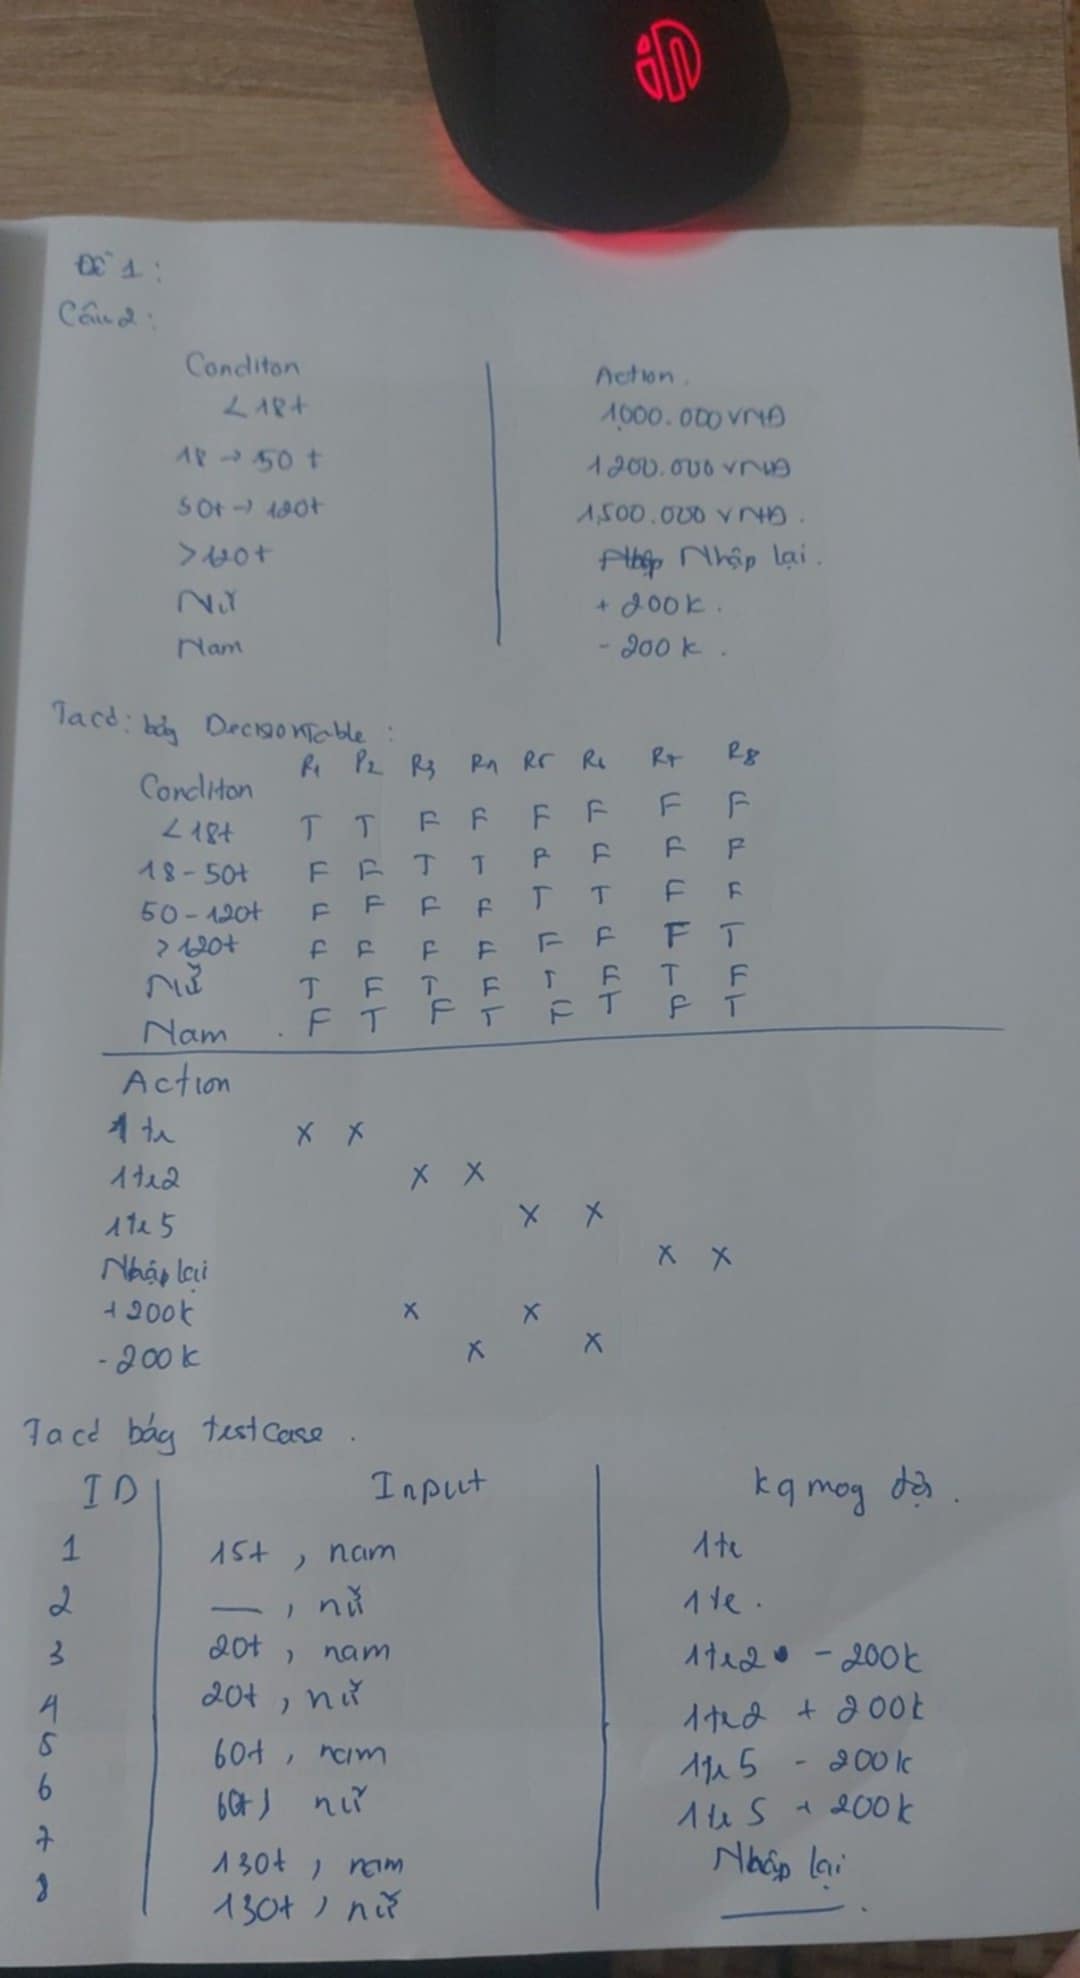 Đề 1:
Câu 2:
Conditon Action.
<18t 1,000.000 VNĐ
18 → 50 t 1200.000 VNĐ
50t → 120t 1,500.000 VNĐ.
>120t Nhập lại.
Nữ + 200k.
Nam - 200k.
Ta có: bảg DecisionTable:
Conditon R1 R2 R3 R4 R5 R6 R7 R8
<18t T T F F F F F F
18-50t F F T T F F F F
50-120t F F F F T T F F
>120t F F F F F F F T
Nữ T F T F T F T F
Nam F T F T F T F T
Action
1 tr x x
1tr2 x x
1tr 5 x x
Nhập lại x x
+ 200k x x
- 200k x x
Ta có bảg testcase.
ID Input kq mog đợi.
1 15t, nam 1tr
2 —, nữ 1tr.
3 20t, nam 1tr2 - 200k
4 20t, nữ 1tr2 + 200k
5 60t, nam 1tr 5 - 200k
6 60t, nữ 1tr 5 + 200k
7 130t, nam Nhập lại
8 130t, nữ —.